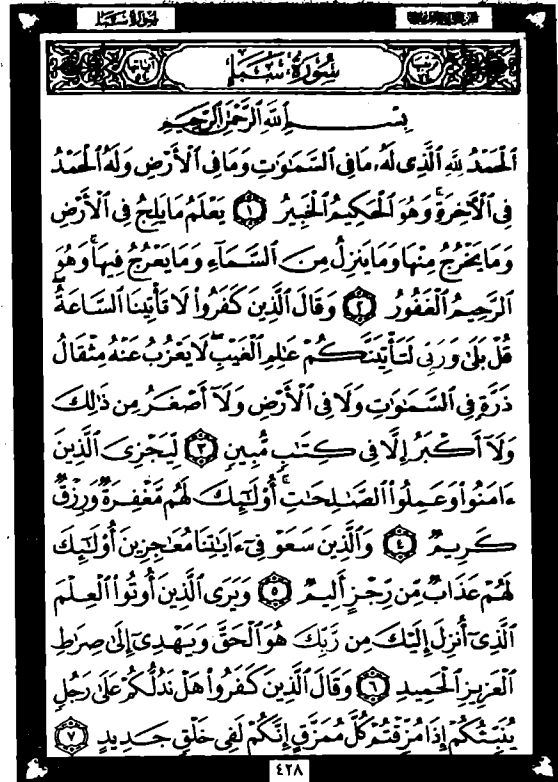 سُورَةُ سَبَإٍ
بِسْمِ اللَّهِ الرَّحْمَٰنِ الرَّحِيمِ
ٱلْحَمْدُ لِلَّهِ ٱلَّذِى لَهُۥ مَا فِى ٱلسَّمَٰوَٰتِ وَمَا فِى ٱلْأَرْضِ وَلَهُ ٱلْحَمْدُ
فِى ٱلْأَخِرَةِ ۚ وَهُوَ ٱلْحَكِيمُ ٱلْخَبِيرُ ١ يَعْلَمُ مَا يَلِجُ فِى ٱلْأَرْضِ
وَمَا يَخْرُجُ مِنْهَا وَمَا يَنزِلُ مِنَ ٱلسَّمَآءِ وَمَا يَعْرُجُ فِيهَا ۚ وَهُوَ
ٱلرَّحِيمُ ٱلْغَفُورُ ٢ وَقَالَ ٱلَّذِينَ كَفَرُوا۟ لَا تَأْتِينَا ٱلسَّاعَةُ ۖ
قُلْ بَلَىٰ وَرَبِّى لَتَأْتِيَنَّكُمْ عَٰلِمِ ٱلْغَيْبِ ۖ لَا يَعْزُبُ عَنْهُ مِثْقَالُ
ذَرَّةٍ فِى ٱلسَّمَٰوَٰتِ وَلَا فِى ٱلْأَرْضِ وَلَآ أَصْغَرُ مِن ذَٰلِكَ
وَلَآ أَكْبَرُ إِلَّا فِى كِتَٰبٍ مُّبِينٍ ٣ لِّيَجْزِىَ ٱلَّذِينَ
ءَامَنُوا۟ وَعَمِلُوا۟ ٱلصَّٰلِحَٰتِ ۚ أُو۟لَٰٓئِكَ لَهُم مَّغْفِرَةٌ وَرِزْقٌ
كَرِيمٌ ٤ وَٱلَّذِينَ سَعَوْ فِىٓ ءَايَٰتِنَا مُعَٰجِزِينَ أُو۟لَٰٓئِكَ
لَهُمْ عَذَابٌ مِّن رِّجْزٍ أَلِيمٌ ٥ وَيَرَى ٱلَّذِينَ أُوتُوا۟ ٱلْعِلْمَ
ٱلَّذِىٓ أُنزِلَ إِلَيْكَ مِن رَّبِّكَ هُوَ ٱلْحَقَّ وَيَهْدِىٓ إِلَىٰ صِرَٰطِ
ٱلْعَزِيزِ ٱلْحَمِيدِ ٦ وَقَالَ ٱلَّذِينَ كَفَرُوا۟ هَلْ نَدُلُّكُمْ عَلَىٰ رَجُلٍ
يُنَبِّئُكُمْ إِذَا مُزِّقْتُمْ كُلَّ مُمَزَّقٍ إِنَّكُمْ لَفِى خَلْقٍ جَدِيدٍ ٧
٤٢٨